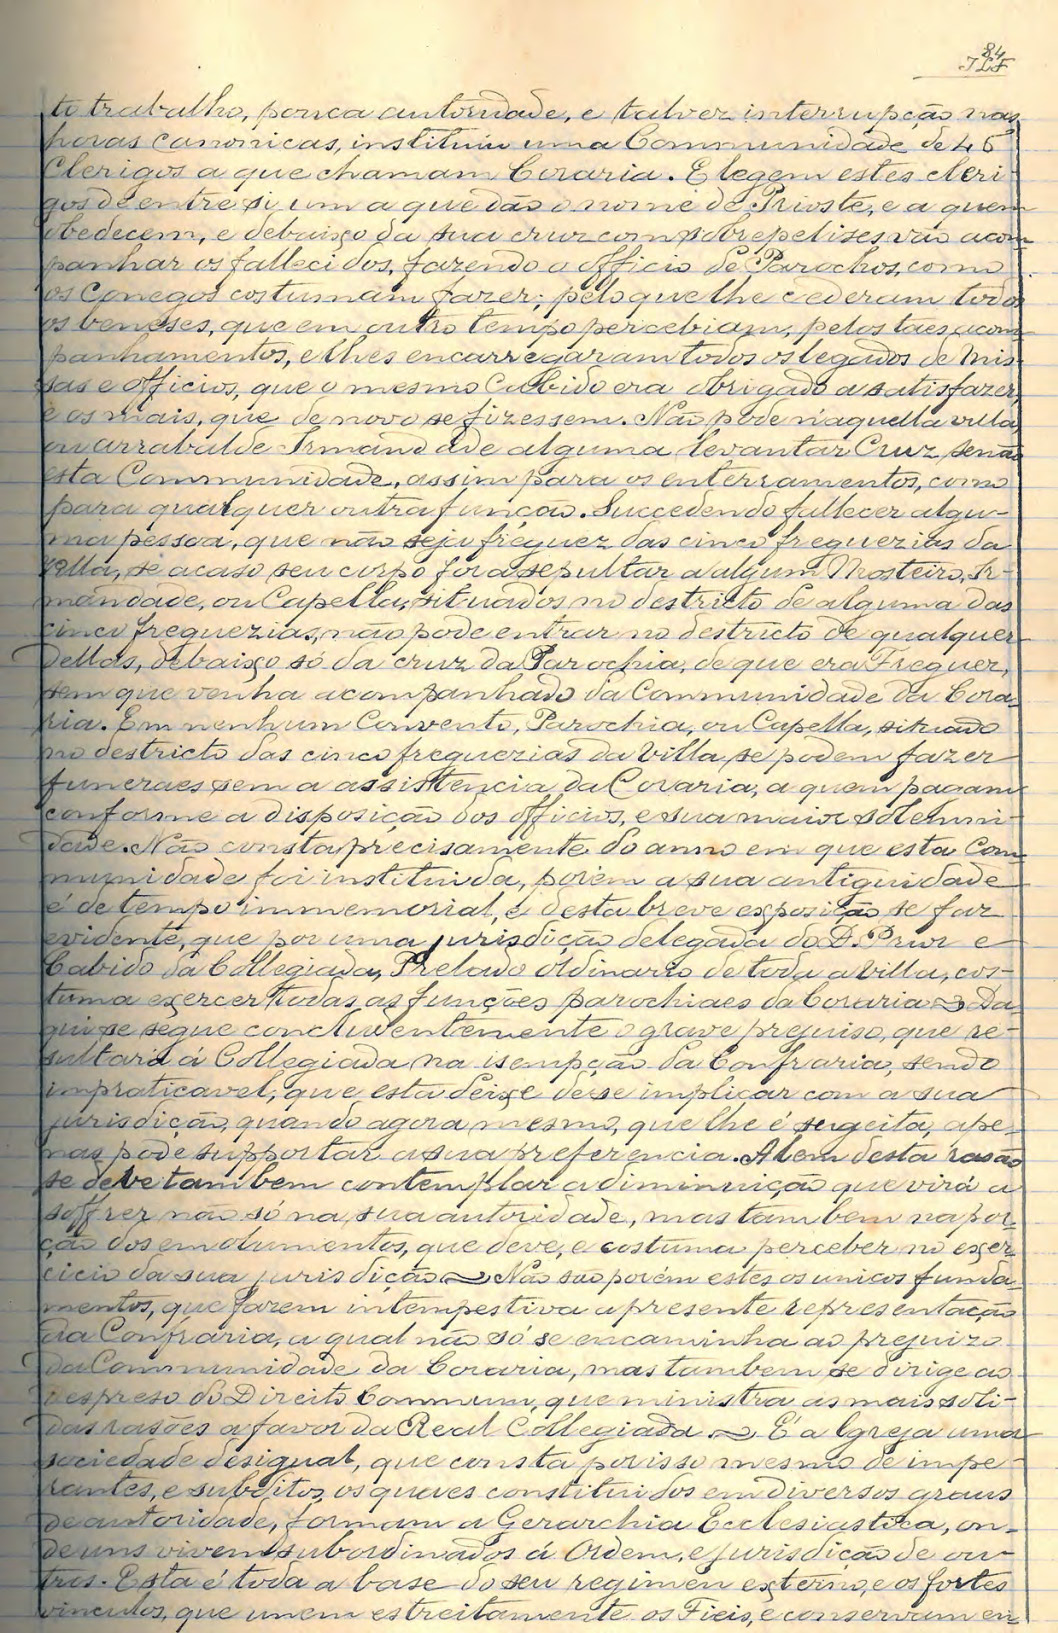 84
JLF
to trabalho, pouca autoridade, e talvez interrupção nas
horas canonicas, instituiu uma Communidade de 45
Clerigos a que chamam Coraria. Elegem estes cleri-
gos de entre si um a que dão o nome de Prioste, e a quem
obedecem, e debaixo da sua cruz com sobrepelises vão acom-
panhar os fallecidos, fazendo o officio de Parochos, como
os Conegos costumam fazer; pelo que lhe cederam todos
os beneses, que em outro tempo percebiam, pelos taes acom-
panhamentos, e lhes encarregaram todos os legados de Mis-
sas e officios, que o mesmo Cabido era obrigado a satisfazer,
e os mais, que de novo se fizessem. Não pode n'aquella villa,
ou arrabalde Irmandade alguma levantar Cruz senão
esta Communidade, assim para os enterramentos, como
para qualquer outra funcção. Succedendo fallecer algu-
ma pessoa, que não seja freguez das cinco freguezias da
Villa, se acaso seu corpo for a sepultar a algum Mosteiro, Ir-
mandade, ou Capella, situados no destricto de alguma das
cinco freguezias, não pode entrar no destricto de qualquer
dellas, debaixo só da cruz da Parochia, de que era Freguez,
sem que venha acompanhado da Communidade da Cora-
ria. Em nenhum Convento, Parochia, ou Capella, situado
no destricto das cinco freguezias da Villa, se podem fazer
funeraes sem a assistencia da Coraria, a quem pagam
conforme a disposição dos officios, e sua maior solemni-
dade. Não consta precisamente do anno em que esta Com-
munidade foi instituida, porém a sua antiguidade
é de tempo immemorial, e desta breve exposição se faz
evidente, que por uma jurisdição delegada do D. Prior e
Cabido da Collegiada, Prelado Ordinario de toda a Villa, cos-
tuma exercer todas as funções parochiaes da Coraria ~ Da-
qui se segue concludentemente o grave prejuiso, que re-
sultará á Collegiada na isempção da Confraria, sendo
impraticavel, que esta deixe de se implicar com a sua
jurisdição, quando agora mesmo, que lhe é sugeita, ape-
nas pode supportar a sua preferencia. Alem desta rasão
se deve tambem contemplar a diminuição que virá a
soffrer não só na sua autoridade, mas tambem na por-
ção dos emolumentos, que deve, e costuma perceber no exer-
cicio da sua jurisdição ~ Não são porém estes os unicos funda-
mentos, que fazem intempestiva a presente representação
da Confraria, a qual não só se encaminha ao prejuizo
da Communidade da Coraria, mas tambem se dirige ao
despreso do Direito Commum, que ministra as mais soli-
das rasões a favor da Real Collegiada ~ É a Igreja uma
sociedade desigual, que consta por isso mesmo de impe-
rantes, e subditos, os quaes constituidos em diversos graus
de autoridade, formam a Gerarchia Ecclesiastica, on-
de uns vivem subordinados á Ordem, e jurisdição de ou-
tros. Esta é toda a base do seu regimen externo, e os fortes
vinculos, que unem estreitamente os Fieis, e conservam en-